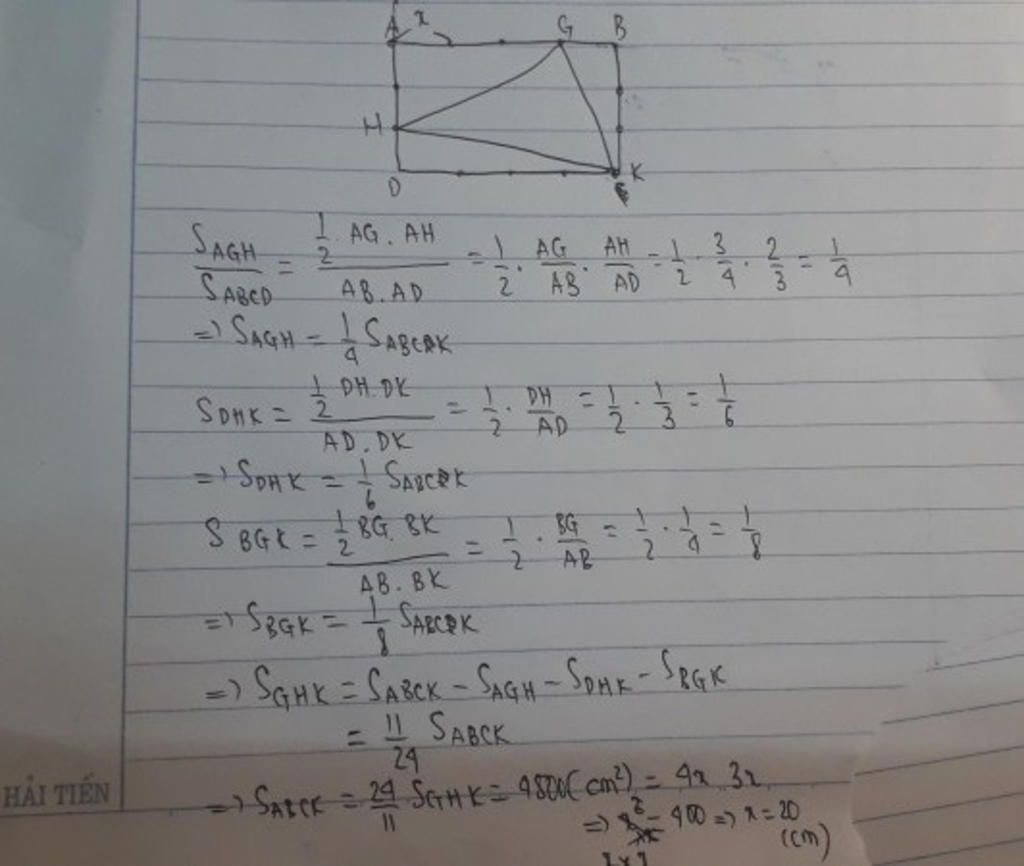 A x G B
H
D K
S_AGH / S_ABCD = (1/2 . AG . AH) / (AB . AD) = 1/2 . AG/AB . AH/AD = 1/2 . 3/4 . 2/3 = 1/4
=> S_AGH = 1/4 S_ABCK
S_DHK = (1/2 DH . DK) / (AD . DK) = 1/2 . DH/AD = 1/2 . 1/3 = 1/6
=> S_DHK = 1/6 S_ABCK
S_BGK = (1/2 BG . BK) / (AB . BK) = 1/2 . BG/AB = 1/2 . 1/4 = 1/8
=> S_BGK = 1/8 S_ABCK
=> S_GHK = S_ABCK - S_AGH - S_DHK - S_BGK
= 11/24 S_ABCK
HẢI TIẾN
=> S_ABCK = 24/11 S_GHK = 4800 (cm²) = 4x 3x
=> x² = 400 => x = 20
(cm)